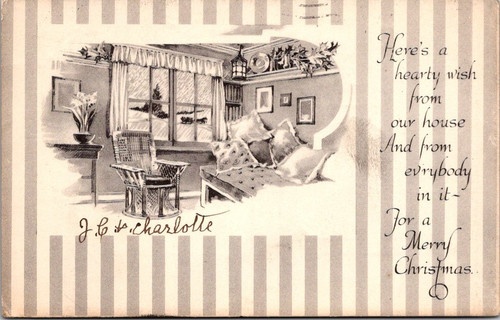 Here's a
hearty wish
from
our house
And from
evrybody
in it~
For a
Merry
Christmas..
J. C & Charlotte